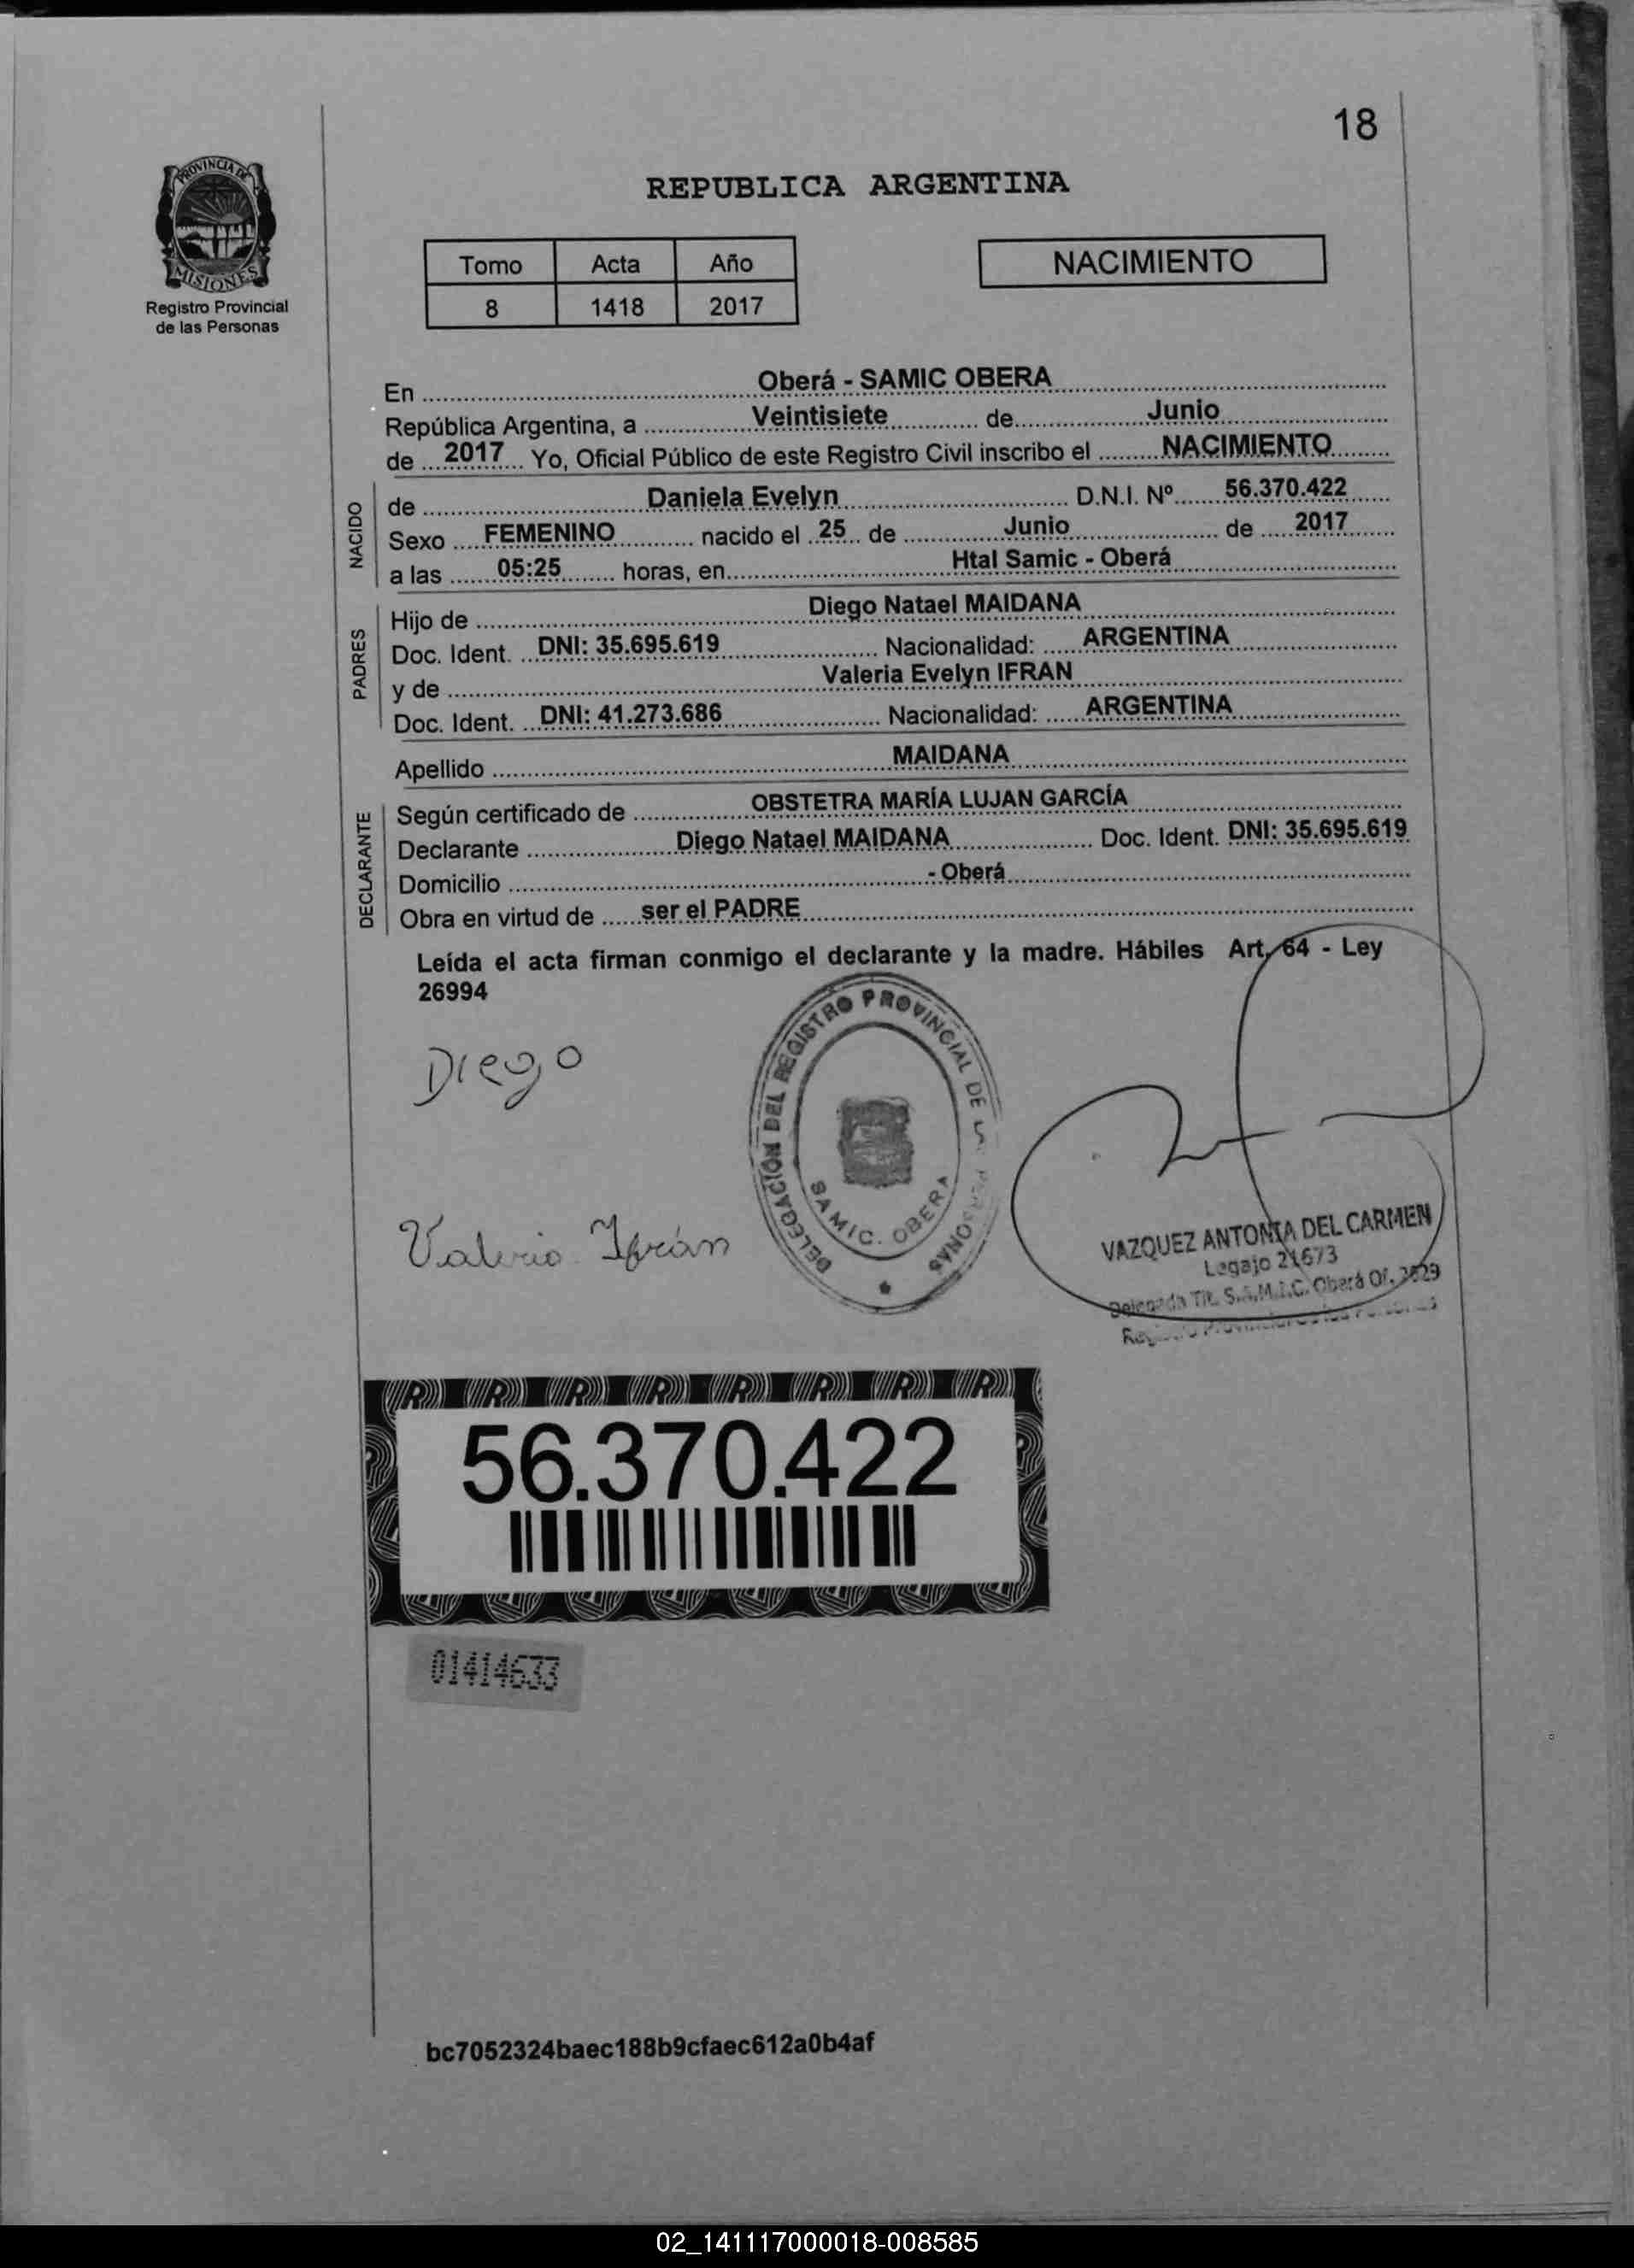 18
PROVINCIA DE
MISIONES
Registro Provincial
de las Personas
REPUBLICA ARGENTINA
Tomo Acta Año
8 1418 2017
NACIMIENTO
En Oberá - SAMIC OBERA
República Argentina, a Veintisiete de Junio
de 2017 Yo, Oficial Público de este Registro Civil inscribo el NACIMIENTO
NACIDO
de Daniela Evelyn D.N.I. Nº 56.370.422
Sexo FEMENINO nacido el 25 de Junio de 2017
a las 05:25 horas, en Htal Samic - Oberá
PADRES
Hijo de Diego Natael MAIDANA
Doc. Ident. DNI: 35.695.619 Nacionalidad: ARGENTINA
y de Valeria Evelyn IFRAN
Doc. Ident. DNI: 41.273.686 Nacionalidad: ARGENTINA
Apellido MAIDANA
DECLARANTE
Según certificado de OBSTETRA MARÍA LUJAN GARCÍA
Declarante Diego Natael MAIDANA Doc. Ident. DNI: 35.695.619
Domicilio - Oberá
Obra en virtud de ser el PADRE
Leída el acta firman conmigo el declarante y la madre. Hábiles Art. 64 - Ley
26994
Diego
DELEGACIÓN DEL REGISTRO PROVINCIAL DE
SAMIC. OBERA
Valeria Ifrán
VAZQUEZ ANTONIA DEL CARMEN
Legajo 21673
Delegada Tit. S.A.M.I.C. Oberá Of.
56.370.422
01414633
bc7052324baec188b9cfaec612a0b4af
02_141117000018-008585